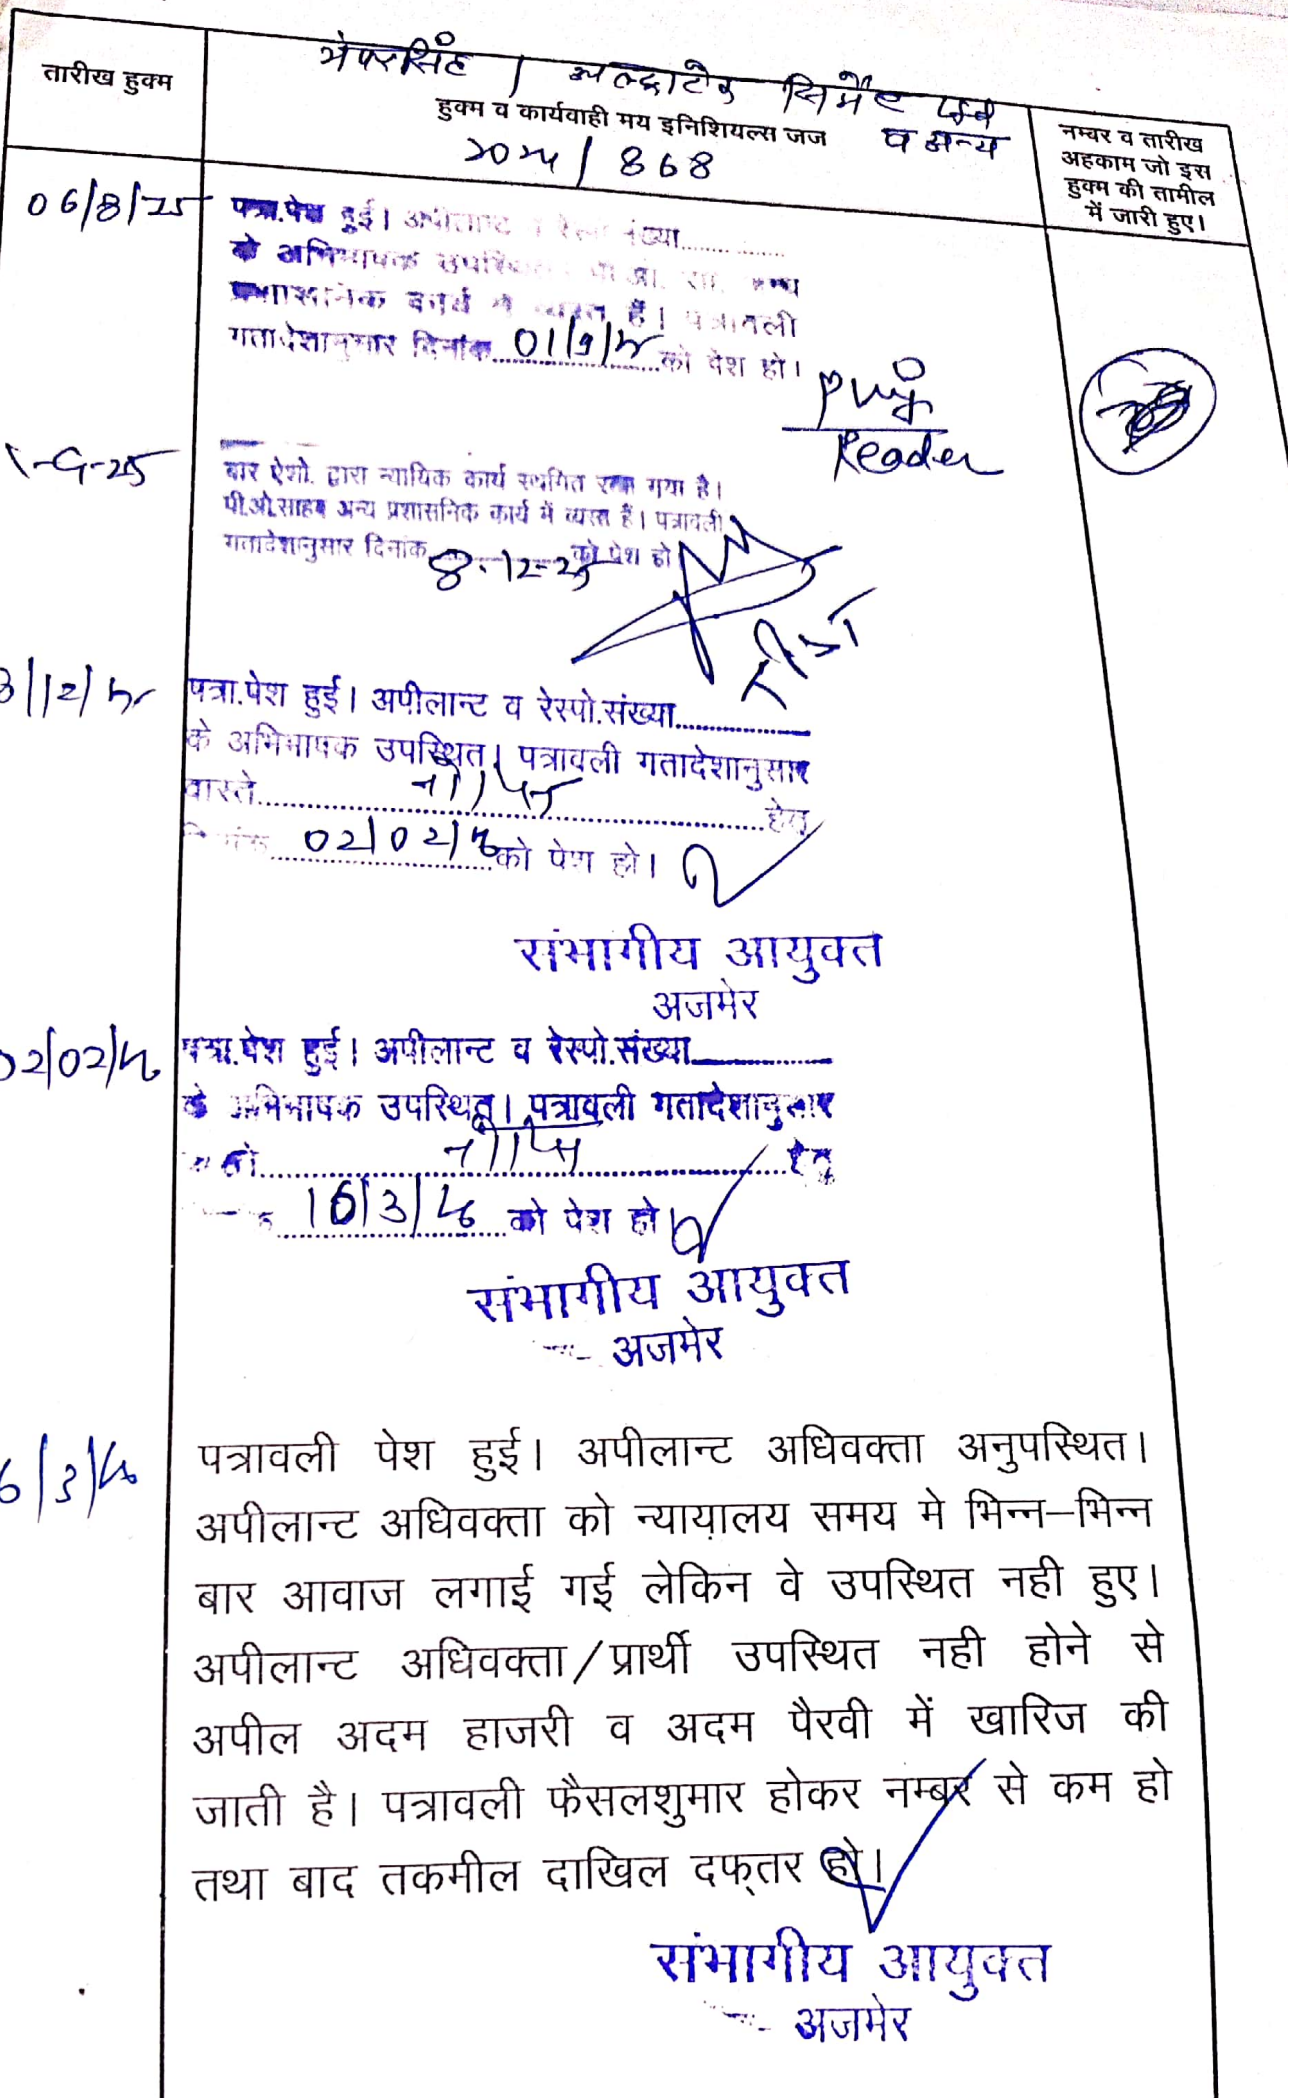 तारीख हुक्म
सिमेंट
व अन्य
हुक्म व कार्यवाही मय इनिशियल्स जज
868
नम्बर व तारीख
अहकाम जो इस
हुक्म की तामील
में जारी हुए।
06/8/25
पत्रा.पेश हुई। अपीलान्ट व संख्या..........
के अभिभाषक
प्रशासनिक कार्य में व्यस्त हैं। पत्रावली
गतादेशानुसार दिनांक 01/9/25 को पेश हो।
Reader
1-9-25
बार ऐशो. द्वारा न्यायिक कार्य स्थगित रखा गया है।
पी.ओ.साहब अन्य प्रशासनिक कार्य में व्यस्त हैं। पत्रावली
गतादेशानुसार दिनांक 8-12-25 को पेश हो
रीडर
8/12/25
पत्रा.पेश हुई। अपीलान्ट व रेस्पो.संख्या..........
के अभिभाषक उपस्थित। पत्रावली गतादेशानुसार
वास्ते.......... हेतु
दिनांक 02/02/26 को पेश हो।
संभागीय आयुक्त
अजमेर
02/02/26
पत्रा.पेश हुई। अपीलान्ट व रेस्पो.संख्या..........
के अभिभाषक उपस्थित। पत्रावली गतादेशानुसार
.......... हेतु
16/3/26 को पेश हो
संभागीय आयुक्त
अजमेर
6/3/26
पत्रावली पेश हुई। अपीलान्ट अधिवक्ता अनुपस्थित।
अपीलान्ट अधिवक्ता को न्यायालय समय मे भिन्न–भिन्न
बार आवाज लगाई गई लेकिन वे उपस्थित नही हुए।
अपीलान्ट अधिवक्ता/प्रार्थी उपस्थित नही होने से
अपील अदम हाजरी व अदम पैरवी में खारिज की
जाती है। पत्रावली फैसलशुमार होकर नम्बर से कम हो
तथा बाद तकमील दाखिल दफ्तर हो।
संभागीय आयुक्त
अजमेर